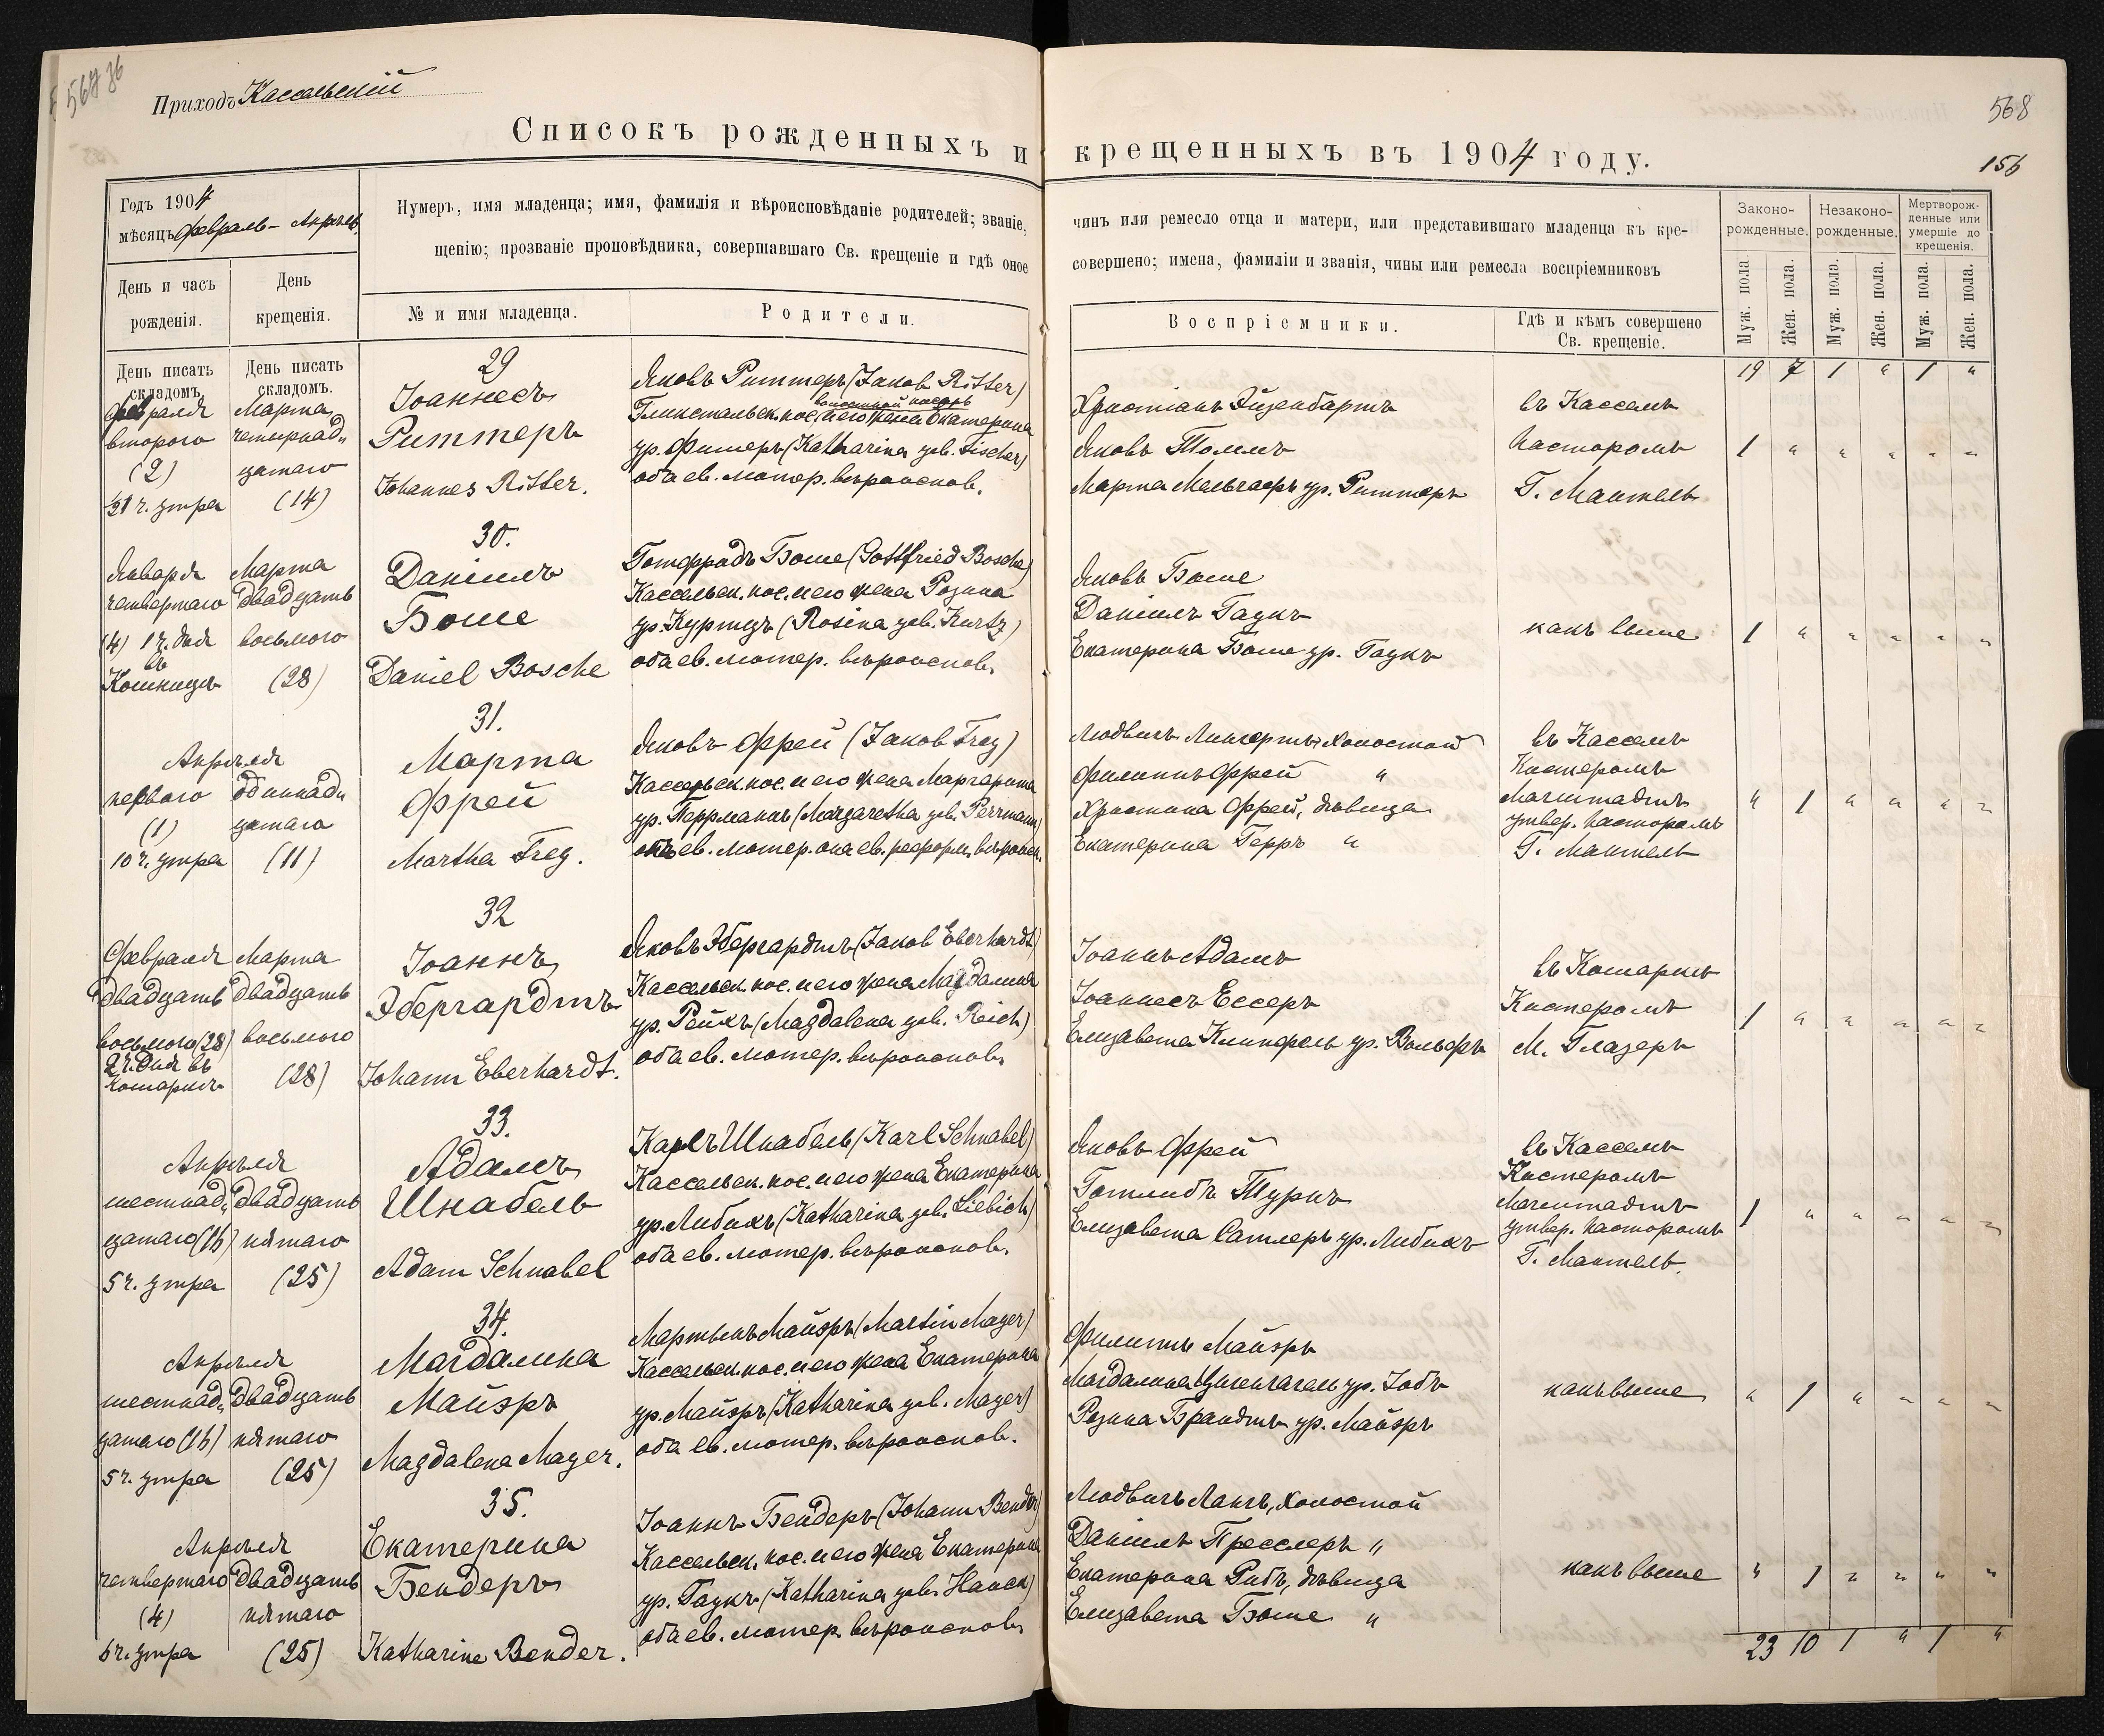 568
156
Приходъ Кассельскій
Списокъ рожденныхъ и крещенныхъ въ 1904 году.
Годъ 1904
мѣсяцъ Февраль – Апрѣль.
Нумеръ, имя младенца; имя, фамилія и вѣроисповѣданіе родителей; званіе, чинъ или ремесло отца и матери, или представившаго младенца къ кре-
щенію; прозваніе проповѣдника, совершавшаго Св. крещеніе и гдѣ оное совершено; имена, фамиліи и званія, чины или ремесла воспріемниковъ
День и часъ
рожденія.
День
крещенія.
№ и имя младенца.
Родители.
Воспріемники.
Гдѣ и кѣмъ совершено
Св. крещеніе.
Законо-
рожденные.
Незаконо-
рожденные.
Мертворож-
денные или
умершіе до
крещенія.
Муж. пола.
Жен. пола.
Муж. пола.
Жен. пола.
Муж. пола.
Жен. пола.
День писать
складомъ.
День писать
складомъ.
19 7 1 " 1 "
Февраля
второго
(2)
утра
Марта
четырнад-
цатаго
(14)
29
Іоаннесъ
Риттеръ
Johannes Ritter.
Яковъ Риттеръ (Jakob Ritter)
Глюкстальск. пос. и его жена Екатерина
ур. Фишеръ (Katharina geb. Fischer)
оба ев. лютер. вѣроиспов.
Христіанъ Эйзенбартъ
Яковъ Толмъ
Марта Мельгафъ ур. Риттеръ
въ Кассель
Пасторомъ
Г. Мантель
1 " " " " "
Января
четвертаго
(4) 1 ч. дня
въ
Кошницѣ
Марта
двадцать
восьмого
(28)
30.
Даніилъ
Боше
Daniel Bosche
Готфридъ Боше (Gottfried Bosche)
Кассельск. пос. и его жена Розина
ур. Куртцъ (Rosina geb. Kurtz)
оба ев. лютер. вѣроиспов.
Яковъ Боше
Даніилъ Гаукъ
Екатерина Боше ур. Гаукъ
какъ выше
1 " " " " "
Апрѣля
перваго
(1)
10 ч. утра
одиннад-
цатаго
(11)
31.
Марта
Фрей
Martha Frey.
Яковъ Фрей (Jakob Frey)
Кассельск. пос. и его жена Маргарита
ур. Перрманнъ (Margaretha geb. Perrmann)
онъ ев. лютер. она ев. реформ. вѣроисп.
Людвигъ Лингертъ, холостой
Филиппъ Фрей "
Христина Фрей, дѣвица
Екатерина Герръ "
въ Кассель
Кистеромъ
Магштадтъ
утвер. Пасторомъ
Г. Мантель
" 1 " " " "
Февраля
двадцать
восьмого (28)
2 ч. дня въ
Комаровъ
Марта
двадцать
восьмого
(28)
32
Іоаннъ
Эбергардтъ
Johann Eberhardt.
Яковъ Эбергардтъ (Jakob Eberhardt)
Кассельск. пос. и его жена Магдалина
ур. Рейхъ (Magdalena geb. Reich)
оба ев. лютер. вѣроиспов.
Іоаннъ Адамъ
Іоаннесъ Ессеръ
Елизавета Клипфель ур. Вольфъ
Кистеромъ
М. Глазеръ
1 " " " " "
Апрѣля
шестнад-
цатаго (16)
5 ч. утра
двадцать
пятаго
(25)
33.
Адамъ
Шнабель
Adam Schnabel
Карлъ Шнабель (Karl Schnabel)
Кассельск. пос. и его жена Екатерина
ур. Либихъ (Katharina geb. Liebich)
оба ев. лютер. вѣроиспов.
Яковъ Фрей
Готлибъ Туркъ
Елизавета Сатлеръ ур. Либихъ
въ Кассель
Кистеромъ
Магштадтъ
утвер. Пасторомъ
Г. Мантель.
1 " " " " "
Апрѣля
шестнад-
цатаго (16)
5 ч. утра
двадцать
пятаго
(25)
34.
Магдалина
Майэръ
Magdalena Mayer.
Мартынъ Майэръ (Martin Mayer)
Кассельск. пос. и его жена Екатерина
ур. Майэръ (Katharina geb. Mayer)
оба ев. лютер. вѣроиспов.
Филиппъ Майэръ
Магдалина ур. Іобъ
Розина Брандтъ ур. Майэръ
какъ выше
" 1 " " " "
Апрѣля
четвертаго
(4)
6 ч. утра
двадцать
пятаго
(25)
35.
Екатерина
Бендеръ
Katharine Bender.
Іоаннъ Бендеръ (Johann Bender)
Кассельск. пос. и его жена Екатерина
ур. Гаукъ (Katharina geb. Hauck)
оба ев. лютер. вѣроиспов.
Людвигъ Лангъ, холостой
Даніилъ Пресслеръ "
Екатерина Рибъ, дѣвица
Елизавета Боше "
какъ выше
" 1 " " " "
23 10 1 " 1 "